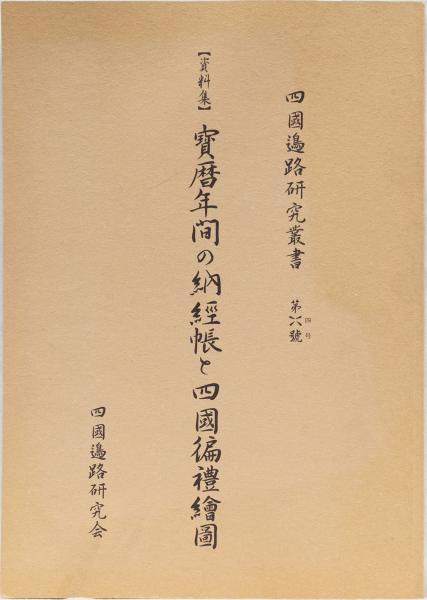 四國邊路研究叢書 第六號
四号
【資料集】寶暦年間の納經帳と四國徧禮繪圖
四國邊路研究会